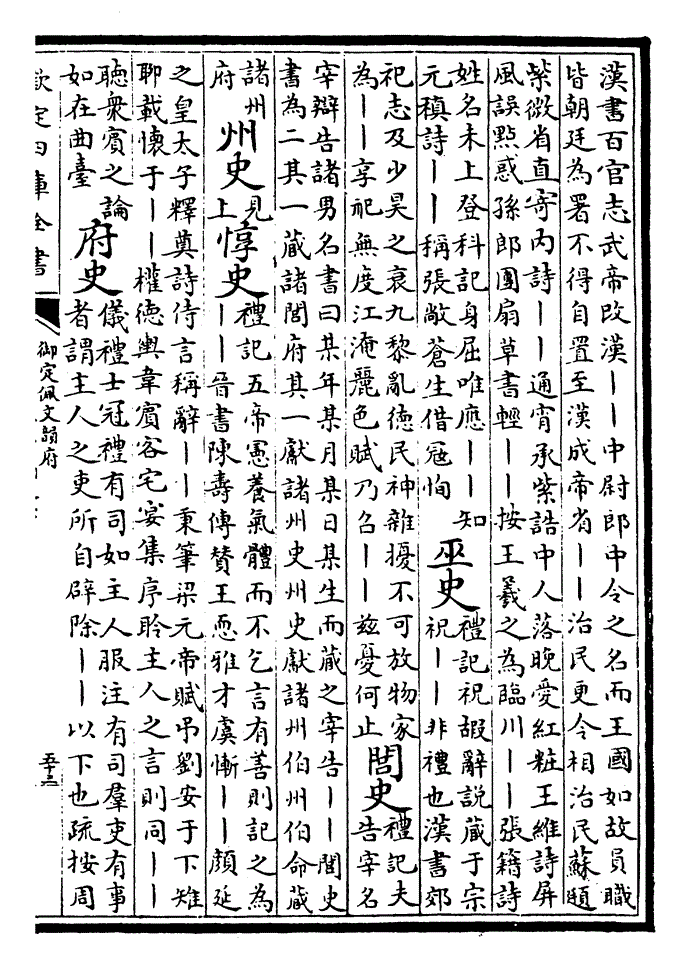 漢書百官志武帝改漢——中尉郎中令之名而王國如故員職
皆朝廷為署不得自置至漢成帝省——治民更令相治民蘇頲
紫微省直寄內詩——通宵承紫誥中人落晚愛紅粧王維詩屏
風誤點惑孫郎團扇草書輕——按王羲之為臨川——張籍詩
姓名未上登科記身屈唯應——知
元稹詩——稱張敞蒼生借冦恂
巫史
禮記祝嘏辭說藏于宗
祝——非禮也漢書郊
祀志及少昊之衰九黎亂德民神雜擾不可放物家
為——享祀無度江淹麗色賦乃召——兹憂何止
閭史
禮記夫
告宰名
宰辯告諸男名書曰某年某月某日某生而藏之宰告——閭史
書為二其一藏諸閭府其一獻諸州史州史獻諸州伯州伯命藏
諸州
府
州史
見
上
惇史
禮記五帝憲養氣體而不乞言有善則記之為
——晉書陳壽傳贊王恧雅才虞慚——顔延
之皇太子釋奠詩侍言稱辭——秉筆梁元帝賦弔劉安于下雉
聊載懷于——權德輿韋賓客宅宴集序聆主人之言則同——
聽衆賓之論
如在曲臺
府史
儀禮士冠禮有司如主人服注有司羣吏有事
者謂主人之吏所自辟除——以下也疏按周
欽定四庫全書
御定佩文韻府
五十三